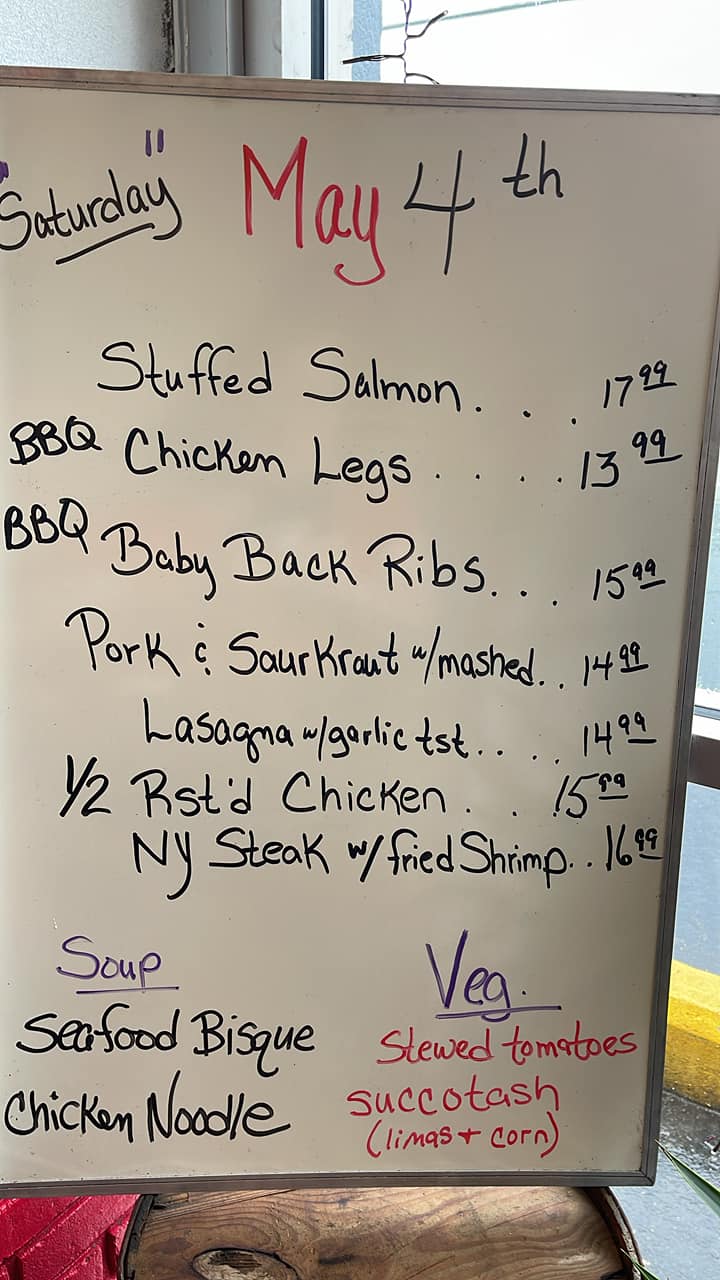 "Saturday" May 4th
Stuffed Salmon . . . 17 99
BBQ Chicken Legs . . . . . 13 99
BBQ Baby Back Ribs. . . 15 99
Pork & SaurKraut w/mashed. . 14 99
Lasagna w/garlic tst. . . . 14 99
1/2 Rst'd Chicken . . . 15 99
NY Steak w/ fried Shrimp. . 16 99
Soup
Seafood Bisque
Chicken Noodle
Veg.
Stewed tomatoes
succotash
(limas + corn)